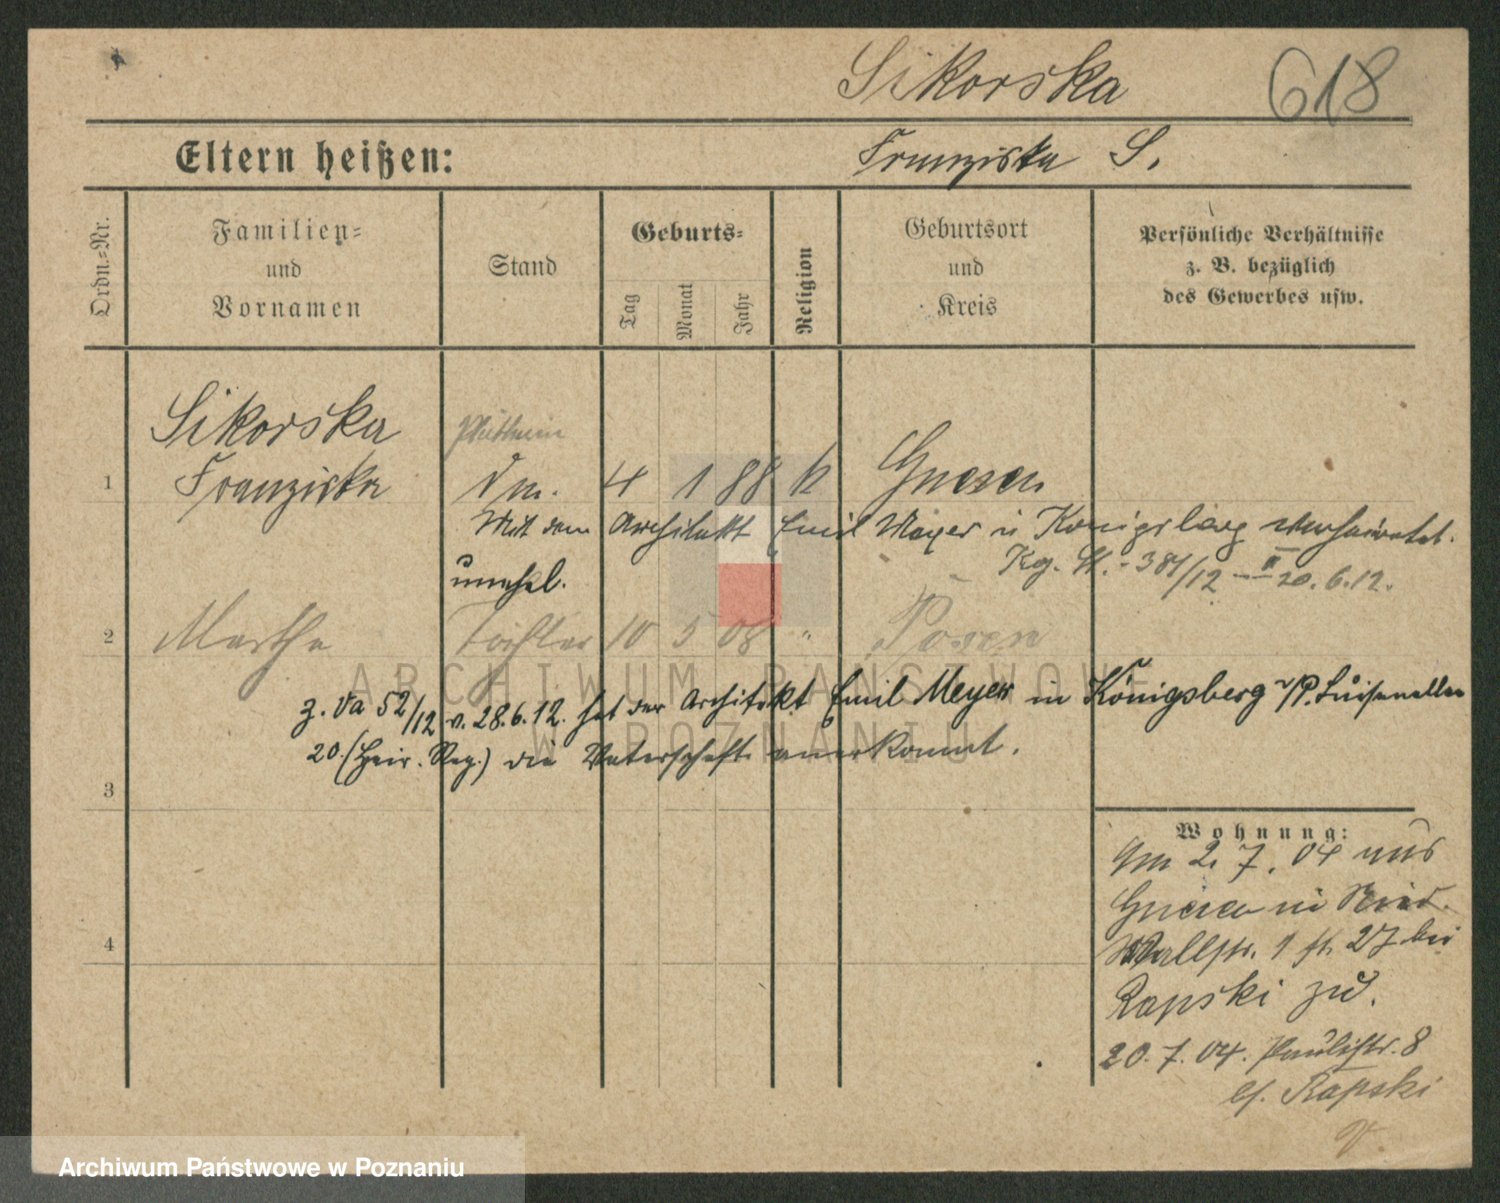 Sikorska 618
Eltern heißen: Franziska S.
Ordn.-Nr.
Familien-
und
Vornamen
Stand
Geburts-
Tag
Monat
Jahr
Religion
Geburtsort
und
Kreis
Persönliche Verhältnisse
z. B. bezüglich
des Gewerbes usw.
Sikorska
1 Franziska 4 1 88 k Gnesen
Mit dem Architekt Emil Meyer in Königsberg verheiratet.
unehel. Kg. St. 381/12 II 20.6.12.
2 Martha Tochter 10 5 08 " Posen
z. Va 52/12 v. 28.6.12. hat der Architekt Emil Meyer in Königsberg /P. Luisenallee
20. (Heir. Reg.) die Vaterschaft anerkannt.
3
Wohnung:
Am 2.7.04 aus
Gnesen in
Wallstr. 1 27 bei
4
Rapski zu.
20.7.04. Paulistr. 8
bei Rapski
ARCHIWUM PAŃSTWOWE
W POZNANIU
Archiwum Państwowe w Poznaniu